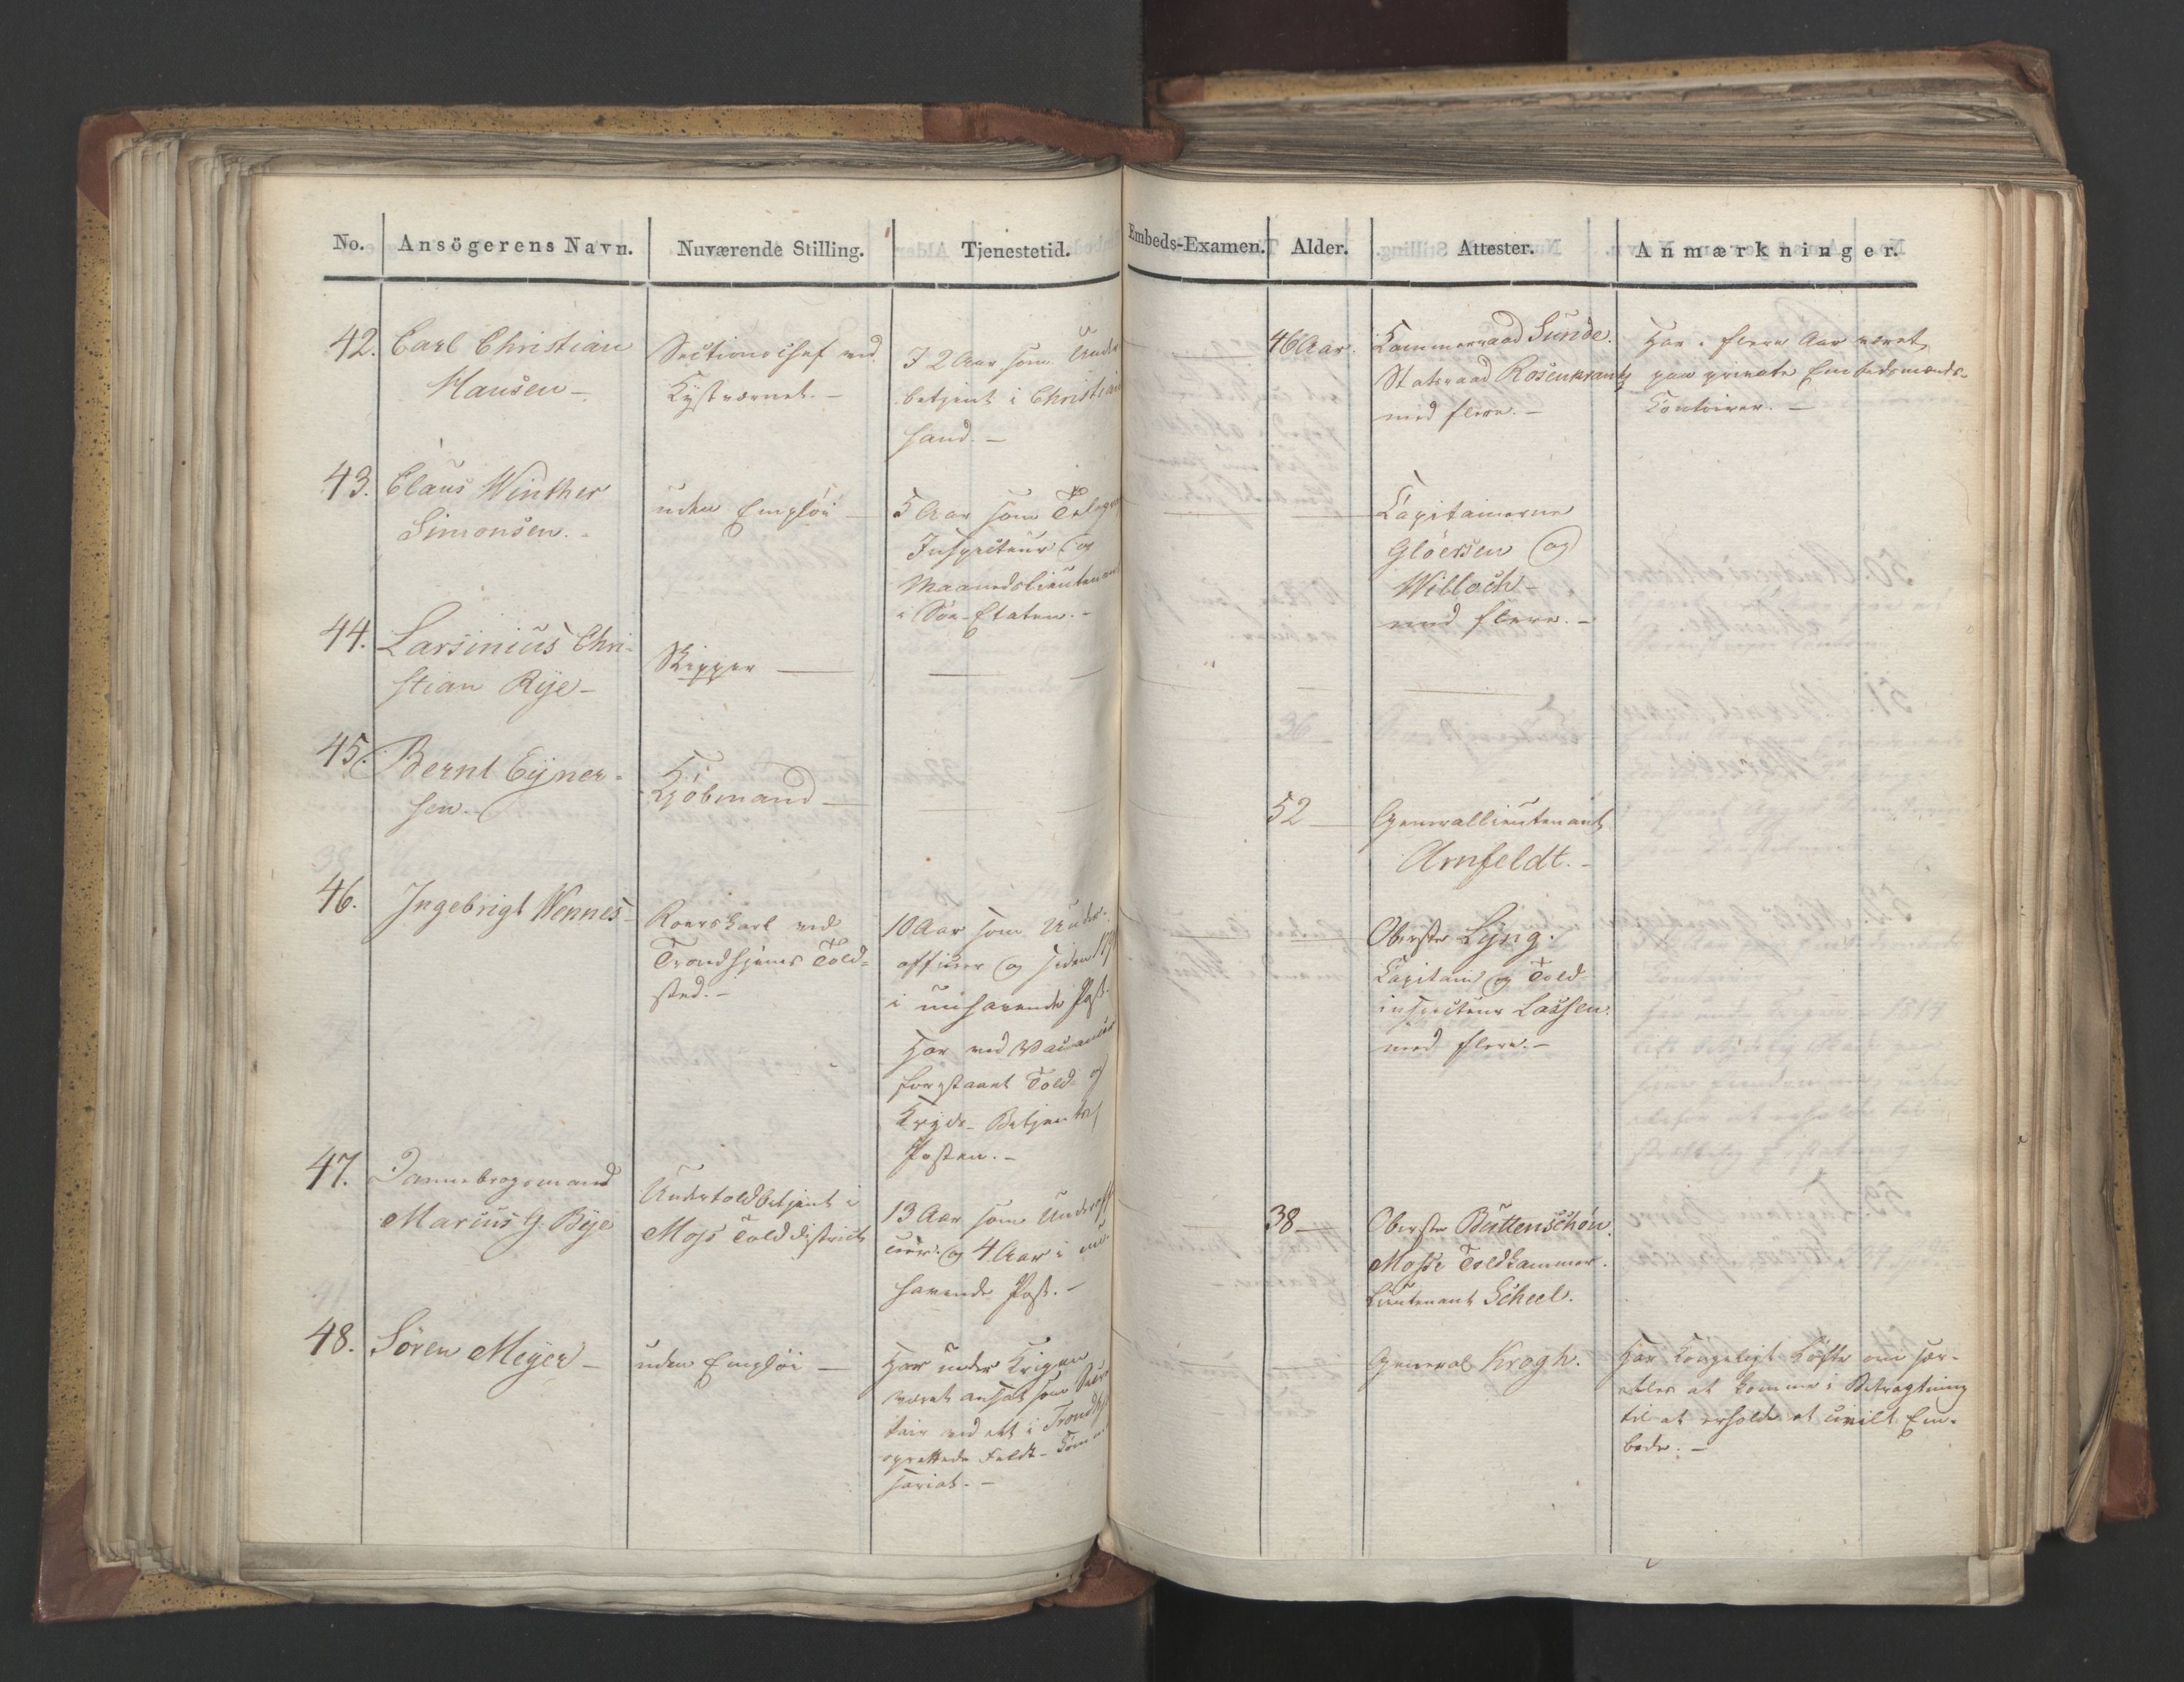 No. Ansögerens Navn. Nuværende Stilling. Tjenestetid. Embeds-Examen. Alder. Attester. Anmærkninger.
42. Carl Christian
Hansen -
Sectionschef ved
Kystværnet. -
I 2 Aar som Under
betjent i Christian
sand. -
46 Aar.
Kammerraad Sunde.
Statsraad Rosenkrantz
med flere. -
Har i flere Aar været
paa private Embedsmænds-
Contoirer. -
43. Claus Winther
Simonsen. -
uden Employ -
5 Aar som Telegra
Inspecteur og
Maanedslieutenant
i Søe-Etaten. -
Capitainerne
Gløersen og
Willoch -
med flere. -
44. Larsinius Chri-
stian Rye -
Skipper -
45. Bernt Eyner-
sen. -
Kjöbmand -
52
Generallieutenant
Arnfeldt. -
46. Ingebrigt Wennes -
Roerskarl ved
Trondhjems Told-
sted. -
10 Aar som Under-
officier og siden
i nuhavende Post.
Har ved Vacancer
forestaaet Told- og
Kryds-Betjent
Posten. -
Oberste Lyng.
Capitain og Told-
inspecteur Lassen.
med flere. -
47. Dannebrogsmand
Marius G. Bye
Undertoldbetjent i
Moss Tolddistrict
13 Aar som Underoffi
cier og 4 Aar i nu
havende Post. -
38 -
Oberste Büttenschön.
Mosse Toldkammer.
Lieutenant Scheel.
48. Sören Meyer -
uden Employ -
Har under Krigen
været ansat som Secre
tair ved det i Trondhj
oprettede Feldt-Commis
sariat. -
General Krogh.
Har Kongeligt Løfte om frem-
deles at komme i Betragtning
til at erholde et civilt Em-
bede. -